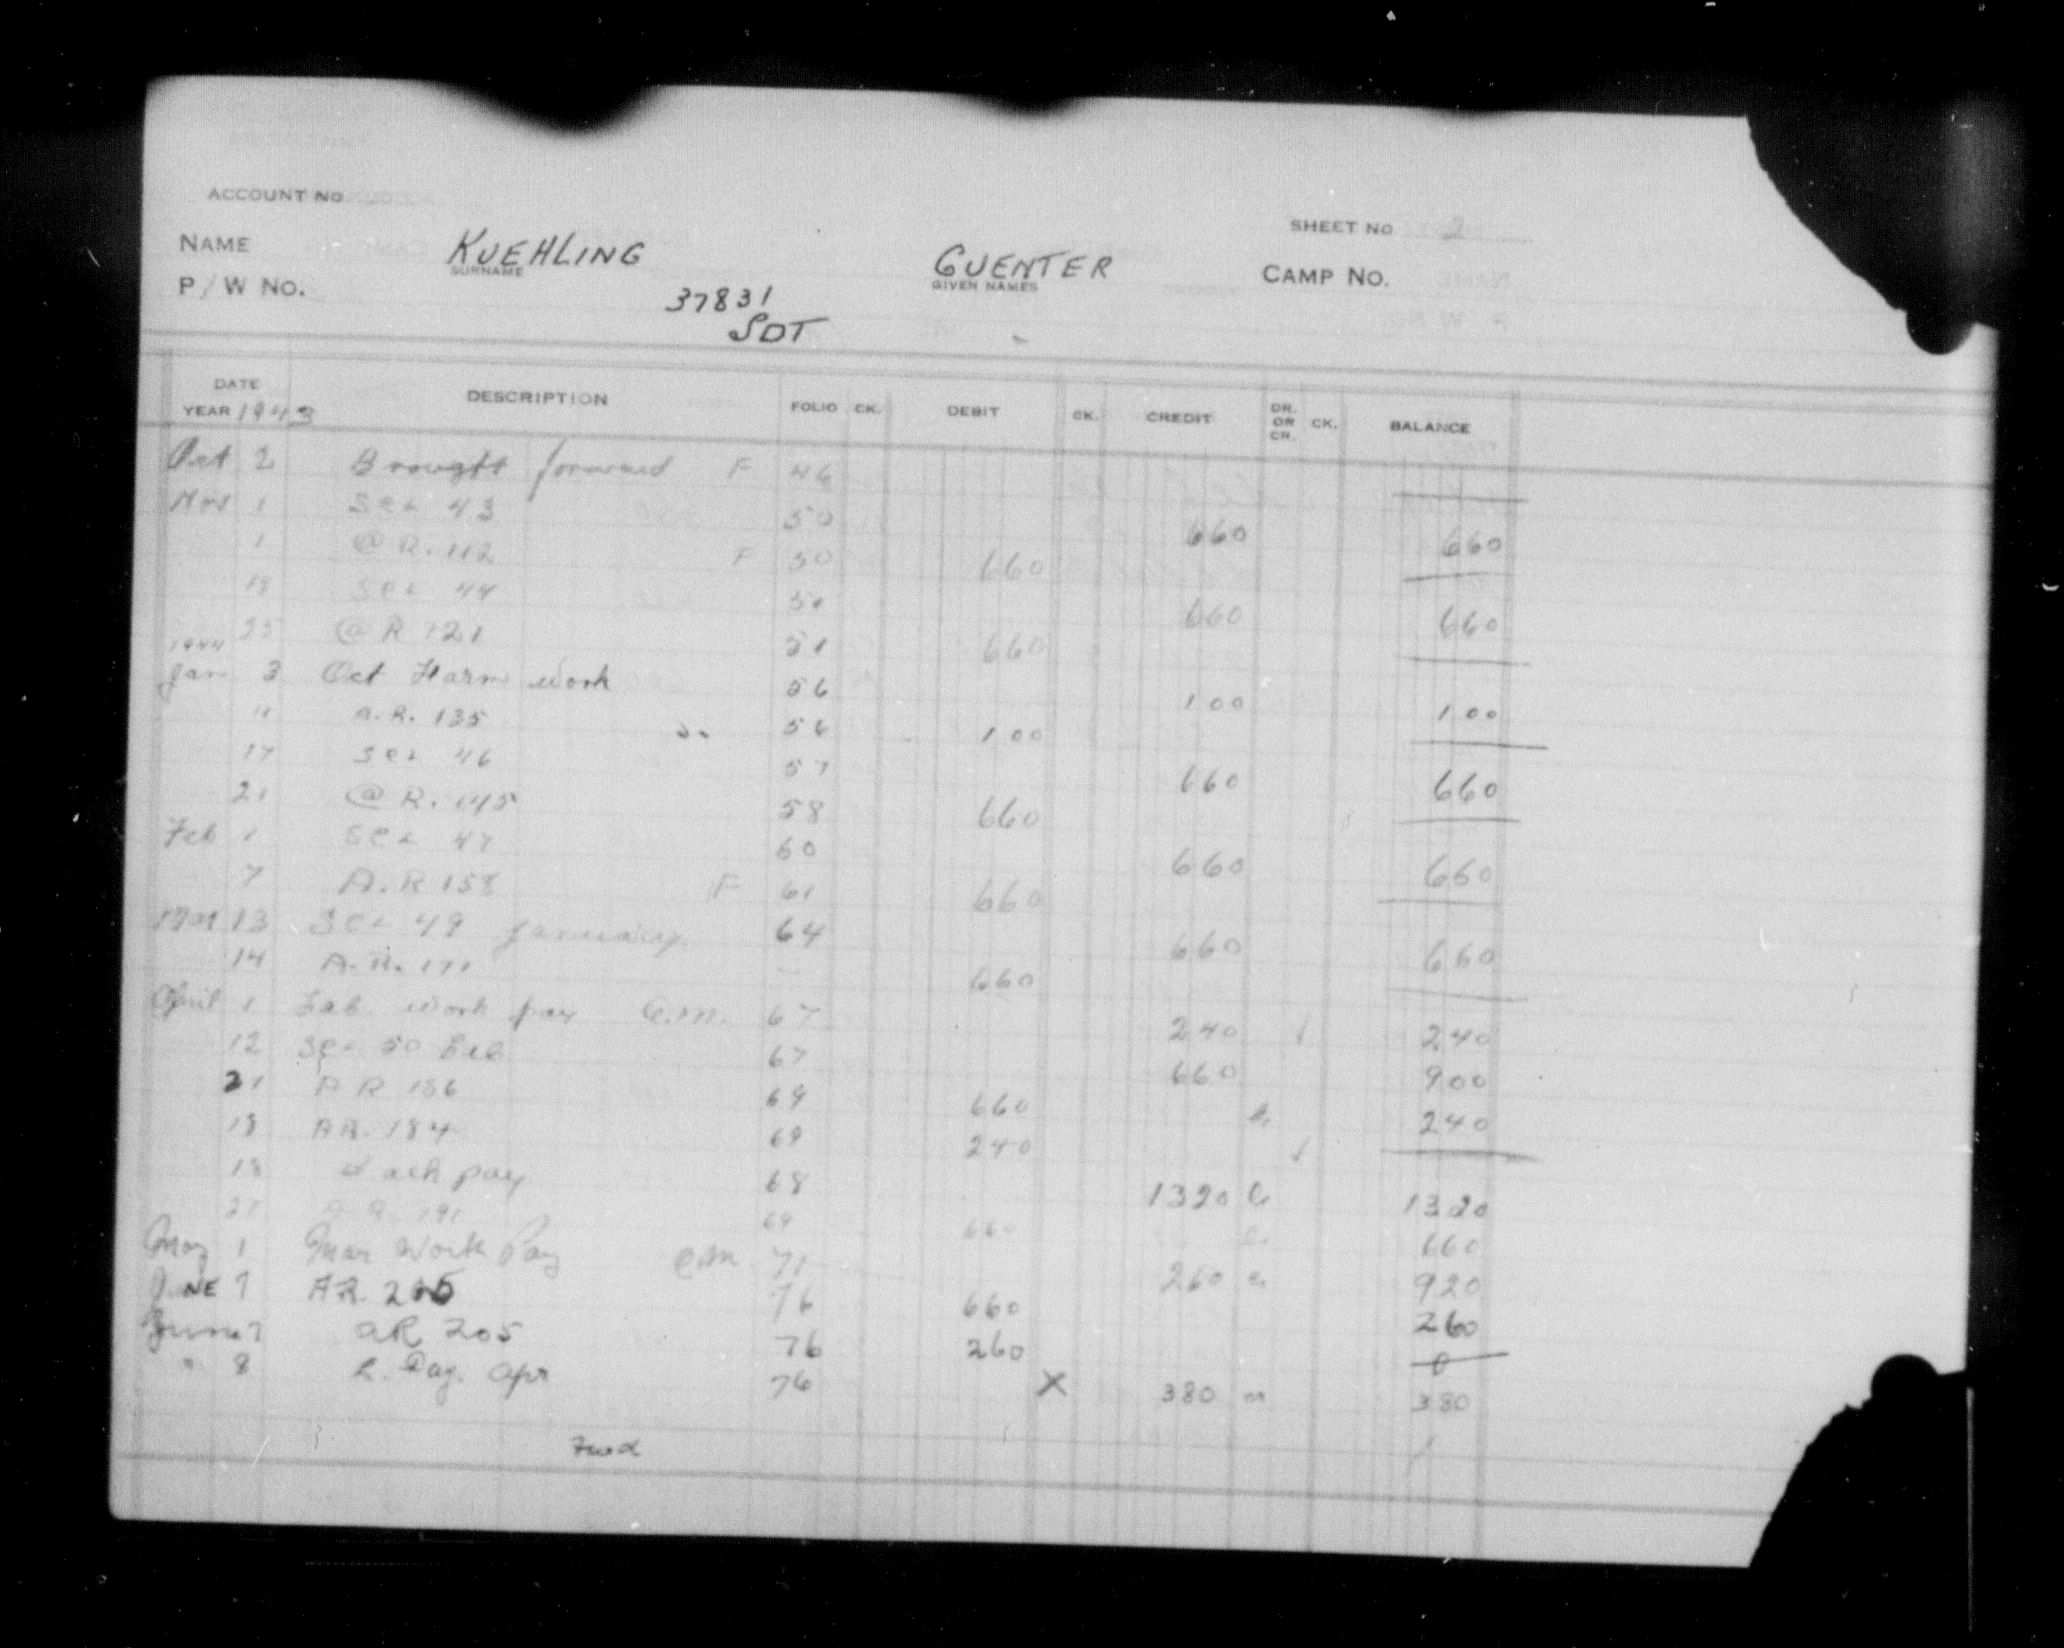 ACCOUNT NO
SHEET NO. 2
NAME KUEHLING GUENTER CAMP NO.
SURNAME GIVEN NAMES
P/W NO. 37831
SDT
DATE YEAR 1943 DESCRIPTION FOLIO CK. DEBIT CK. CREDIT DR. OR CR. CK. BALANCE
Oct 2 Brought forward F 46
Nov 1 43 50 660 660
1 @R. 112 F 50 660
18 44 660 660
25 @R 121 51 660
1944
Jan 3 Oct Farm work 56 100 100
" A.R. 135 56 100
17 46 57 660 660
21 @R. 145 58 660
Feb 1 47 60 660 660
7 A.R 158 F 61 660
Mar 13 49 January 64 660 660
14 A.R. 171 660
April 1 work pay C.M. 67 240 240
12 50 Feb 67 660 900
21 186 69 660 240
18 AR. 184 69 240
18 pay 68 1320 1320
27 A.R. 191 69 660 660
May 1 Mar Work Pay C.M. 71 260 920
JUNE 7 AR. 76 660 260
June 7 AR 205 76 260 0
" 8 Pay. Apr 76 X 380 380
Fwd